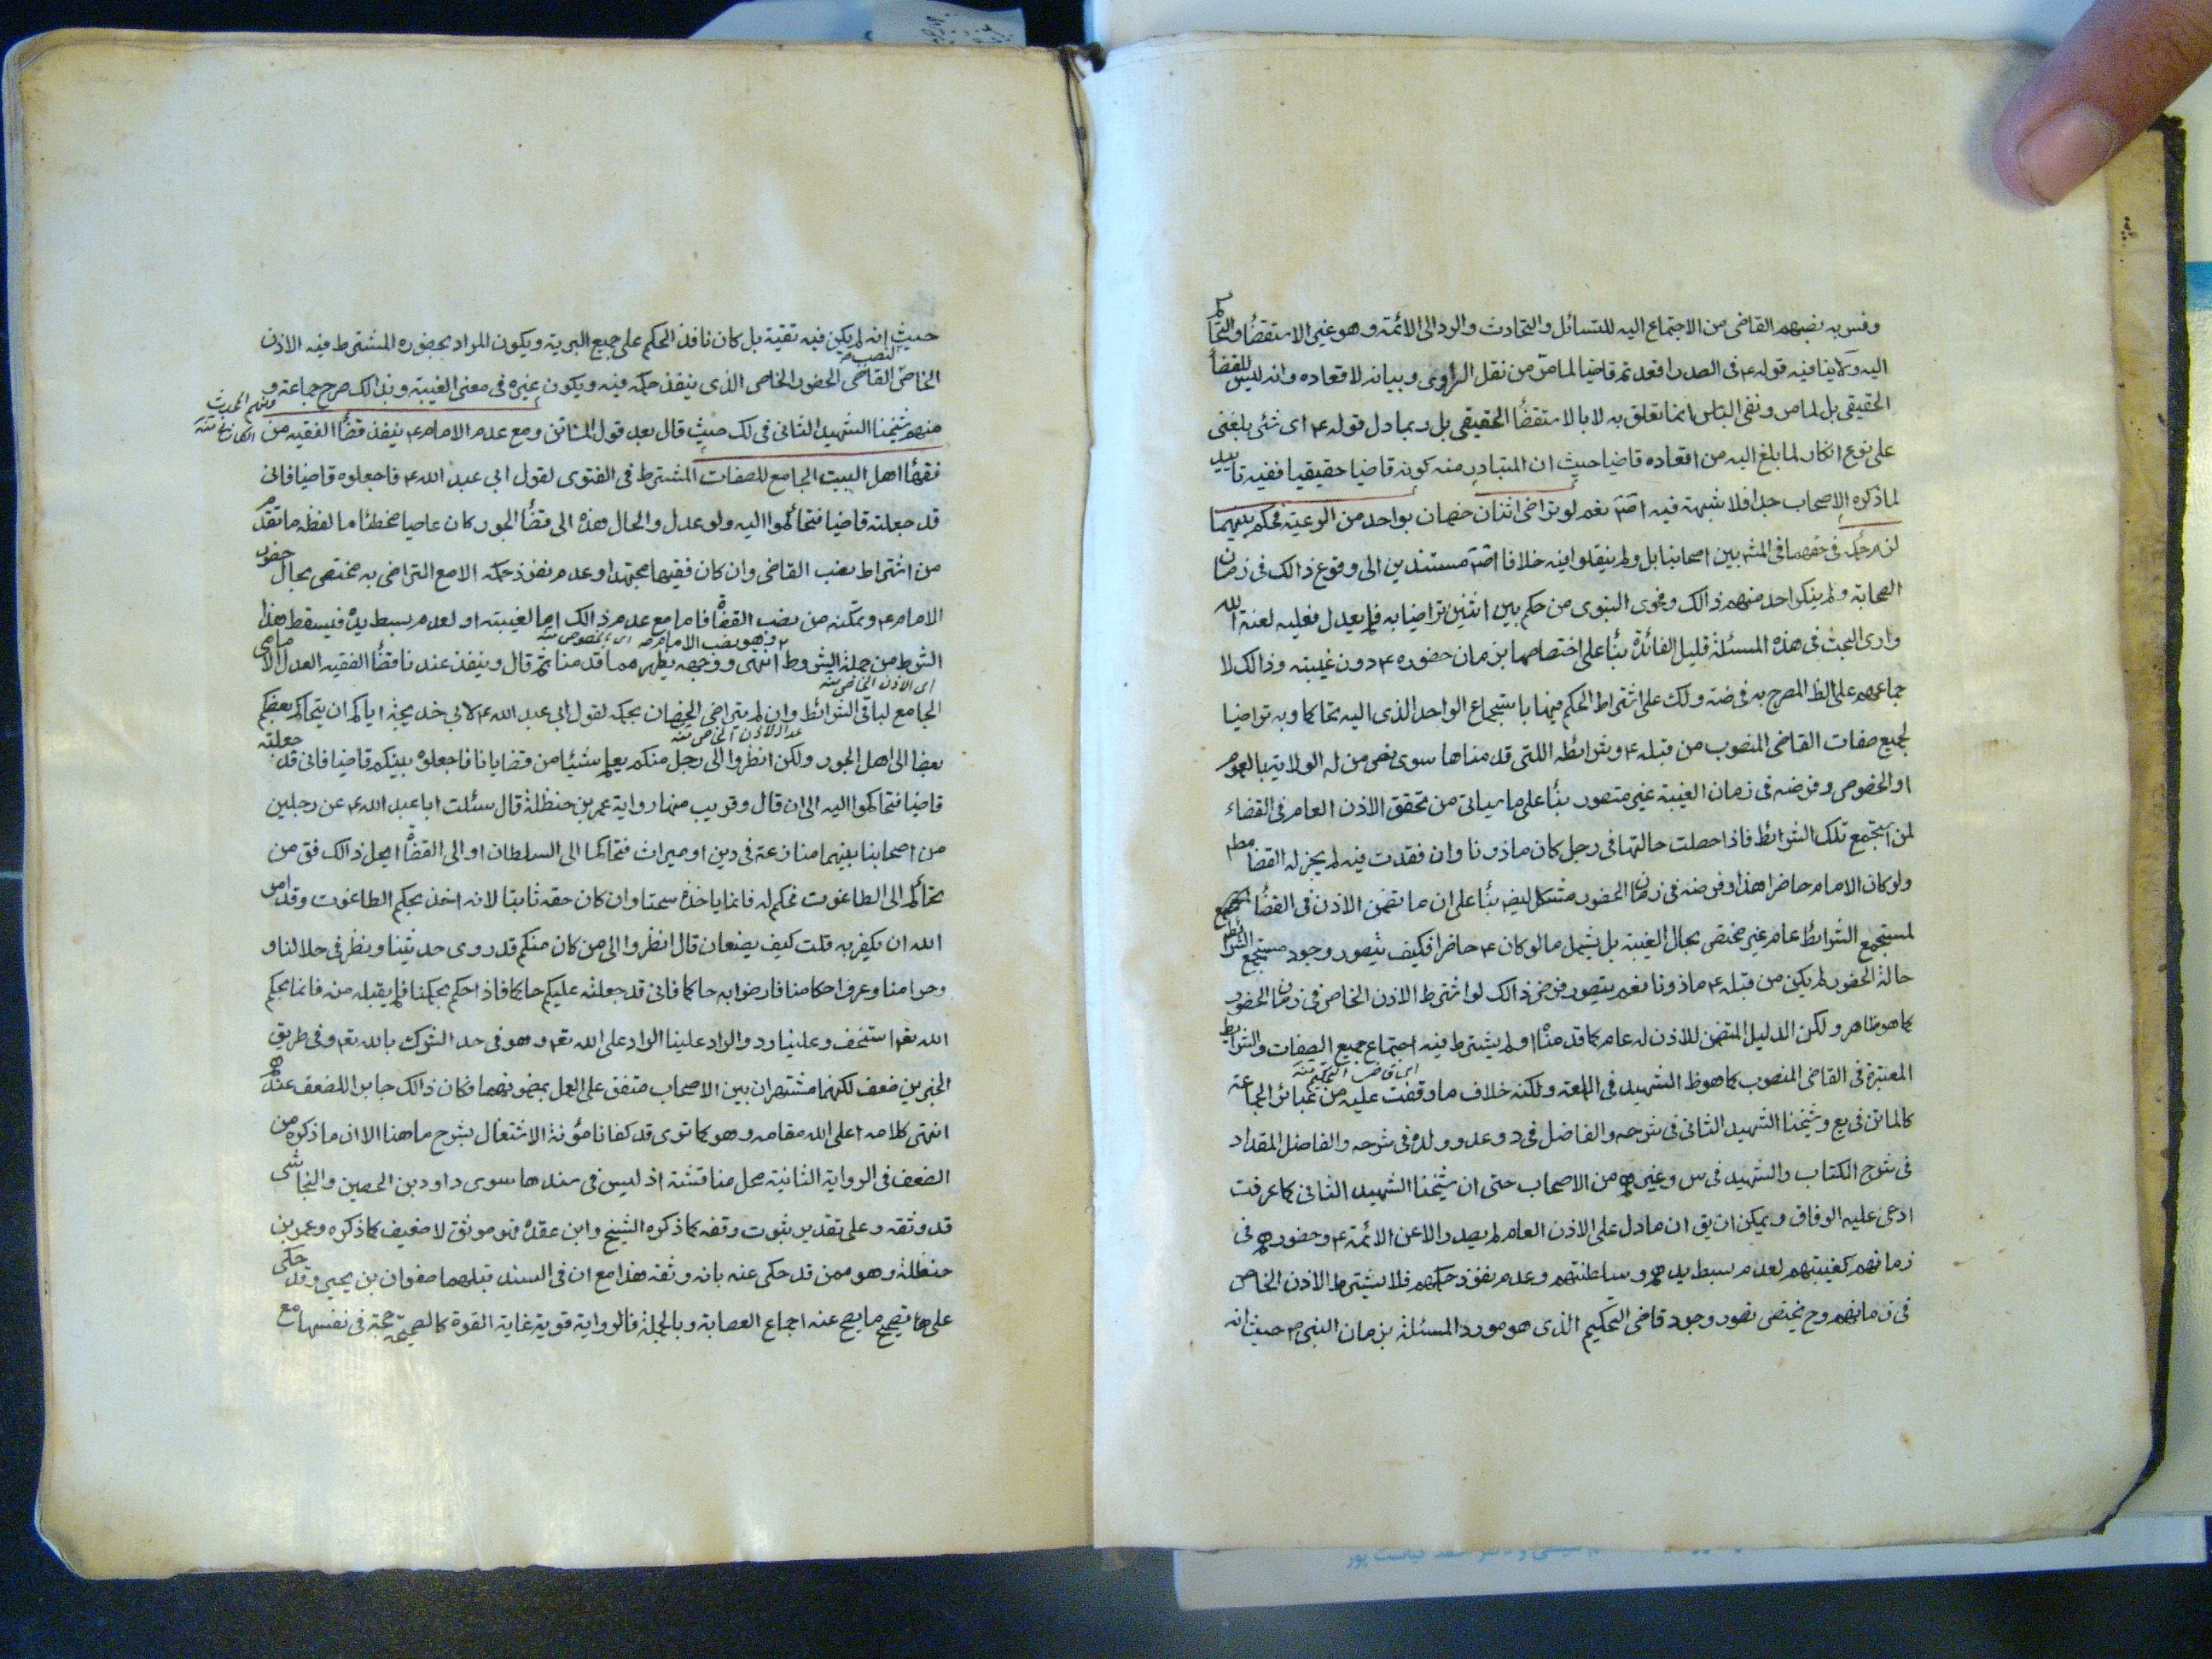 وفسر به نصبهم القاضى من الاجتماع اليه للتسائل والتحادث والرد الى الائمة وهو غير الاستقضاء والتحاكم
اليه ولا ينافيه قوله ع فى الصدر اقعد ثم قاضيا لما مر من نقل الراوى وبيانه لاقعاده وانه ليس للقضاء
الحقيقى بل لما مر ونفى الباس انما تعلق به لا بالاستقضاء الحقيقى بل ربما دل قوله ع اى شئ بلغنى
على نوع انكار لما بلغ اليه من اقعاده قاضيا حيث ان المتبادر منه كونه قاضيا حقيقيا ففيه تاييد
لما ذكره الاصحاب جدا فلا شبهة فيه اصلا نعم لو تراضى اثنان خصمان بواحد من الرعية فحكم بينهما
لزم حكمه فى حقهما فى المشهور بين اصحابنا بل ولم ينقلوا فيه خلافا اصلا مستندين الى وقوع ذالك فى زمان
الصحابة ولم ينكر احد منهم ذالك وفحوى النبوى من حكم بين اثنين تراضيا به فلم يعدل فعليه لعنة الله
وارى البحث فى هذه المسئلة قليل الفائدة بناء على اختصاصها بزمان حضوره ع دون غيبته وذالك لا
جماعهم على الظ المصرح به فى ضه ولك على اشتراط الحكم فيها باستجماع الواحد الذى اليه تحاكما وبه تراضيا
لجميع صفات القاضى المنصوب من قبله ع وشرائطه اللتى قدمناها سوى نص من له الولاية بالعموم
او الخصوص وفرضه فى زمان الغيبة غير متصور بناء على ما سياتى من تحقق الاذن العام فى القضاء
لمن استجمع تلك الشرائط فاذا حصلت حالتها فى رجل كان ماذونا وان فقدت فيه لم يجز له القضاء مطلقا
ولو كان الامام حاضرا هذا وفرضه فى زمان الحضور مشكل ايضا بناء على ان ما تضمن الاذن فى القضاء
لمستجمع الشرائط عام غير مختص بحال الغيبة بل يشمل ما لو كان ع حاضرا فكيف يتصور وجود مستجمع الشرائط
حالة الحضور لم يكن من قبله ع ماذونا نعم يتصور فرض ذالك لو اشترط الاذن الخاص فى زمان الحضور
كما هو ظاهر ولكن الدليل المتضمن للاذن له عام كما قدمناه او لم يشترط فيه اجتماع جميع الصفات والشرايط
اى قاضى التحكيم منه
المعتبرة فى القاضى المنصوب كما هو ظ الشهيد فى اللمعة ولكنه خلاف ما وقفت عليه من عبائر الجماعة
كالماتن فى يع وشيخنا الشهيد الثانى فى شرحه والفاضل فى د وعد وولده فى شرحه والفاضل المقداد
فى شرح الكتاب والشهيد فى س وغيرهم من الاصحاب حتى ان شيخنا الشهيد الثانى كما عرفت
ادعى عليه الوفاق ويمكن ان يق ان ما دل على الاذن العام لم يصدر الا عن الائمة ع وحضورهم فى
زمانهم كغيبتهم لعدم بسط يدهم وسلطنتهم وعدم نفوذ حكمهم فلا يشترط الاذن الخاص
فى زمانهم وح يختص تصور وجود قاضى التحكيم الذى هو مورد المسئلة بزمان النبى ص حيث انه
حيث انه لم يكن فيه تقية بل كان نافذ الحكم على جميع البرية ويكون المراد بحضوره المشترط فيه الاذن
الخاص لنصب القاضى الحضور الخاص الذى ينفذ حكمه فيه ويكون غيره فى معنى الغيبة وبذالك صرح جماعة و
منهم المحدث الكاشانى منه
منهم شيخنا الشهيد الثانى فى لك حيث قال بعد قول الماتن ومع عدم الامام ع ينفذ قضاء الفقيه من
فقهاء اهل البيت الجامع للصفات المشترط فى الفتوى لقول ابى عبد الله ع فاجعلوه قاضيا فانى
قد جعلته قاضيا فتحاكموا اليه ولو عدل والحال هذه الى قضاء الجور كان عاصيا مخطئا ما لفظه ما تقدم
من اشتراط نصب القاضى وان كان فقيها مجتهدا وعدم نفوذ حكمه الا مع التراضى به مختص بحال حضور
الامام ع وتمكنه من نصب القضاة فاما مع عدم ذالك اما لغيبته او لعدم بسط يده فيسقط هذا
وهو نصب الامام ع اى بالخصوص منه
الشرط من جملة الشروط انتهى ووجهه يظهر مما قدمنا ثم قال وينفذ عندنا قضاء الفقيه العدل الامامى
اى الاذن الخاص منه
الجامع لباقى الشرائط وان لم يتراضى الخصمان بحكمه لقول ابى عبد الله ع لابى خديجة اياكم ان يتحاكم بعضكم
بعضا الى اهل الجور ولكن انظروا الى رجل منكم يعلم شيئا من قضايانا فاجعلوه بينكم قاضيا فانى قد جعلته
قاضيا فتحاكموا اليه الى ان قال وقريب منها رواية عمر بن حنظلة قال سئلت ابا عبد الله ع عن رجلين
من اصحابنا بينهما منازعة فى دين او ميراث فتحاكما الى السلطان او الى القضاة ايحل ذالك فق من
تحاكم الى الطاغوت فحكم له فانما ياخذه سحتا وان كان حقه ثابتا لانه اخذ بحكم الطاغوت وقد امر
الله ان يكفر به قلت كيف يصنعان قال انظروا الى من كان منكم قد روى حديثنا ونظر فى حلالنا و
وحرامنا وعرف احكامنا فارضوا به حاكما فانى قد جعلته عليكم حاكما فاذا حكم بحكمنا فلم يقبله منه فانما بحكم
الله تعا استخف وعلينا رد والراد علينا الراد على الله تعا وهو فى حد الشرك بالله تعا وفى طريق
الخبرين ضعف لكنهما مشتهران بين الاصحاب متفق على العمل بمضمونهما فكان ذالك جابرا للضعف عندهم
انتهى كلامه اعلى الله مقامه وهو كما ترى قد كفانا مؤنة الاشتغال بشرح ما هنا الا ان ما ذكره من
الضعف فى الرواية الثانية محل مناقشة اذ ليس فى سندها سوى داود بن الحصين والنجاشى
قد وثقه وعلى تقدير ثبوت وقفه كما ذكره الشيخ وابن عقدة فهو موثق لا ضعيف كما ذكره وعمر بن
حنظلة وهو ممن قد حكى عنه بانه وثقه هذا مع ان فى السند قبلهما صفوان بن يحيى وقد حكى
على تصحيح ما يصح عنه اجماع العصابة وبالجملة فالرواية قوية غاية القوة كالصحيح حجة فى نفسها مع